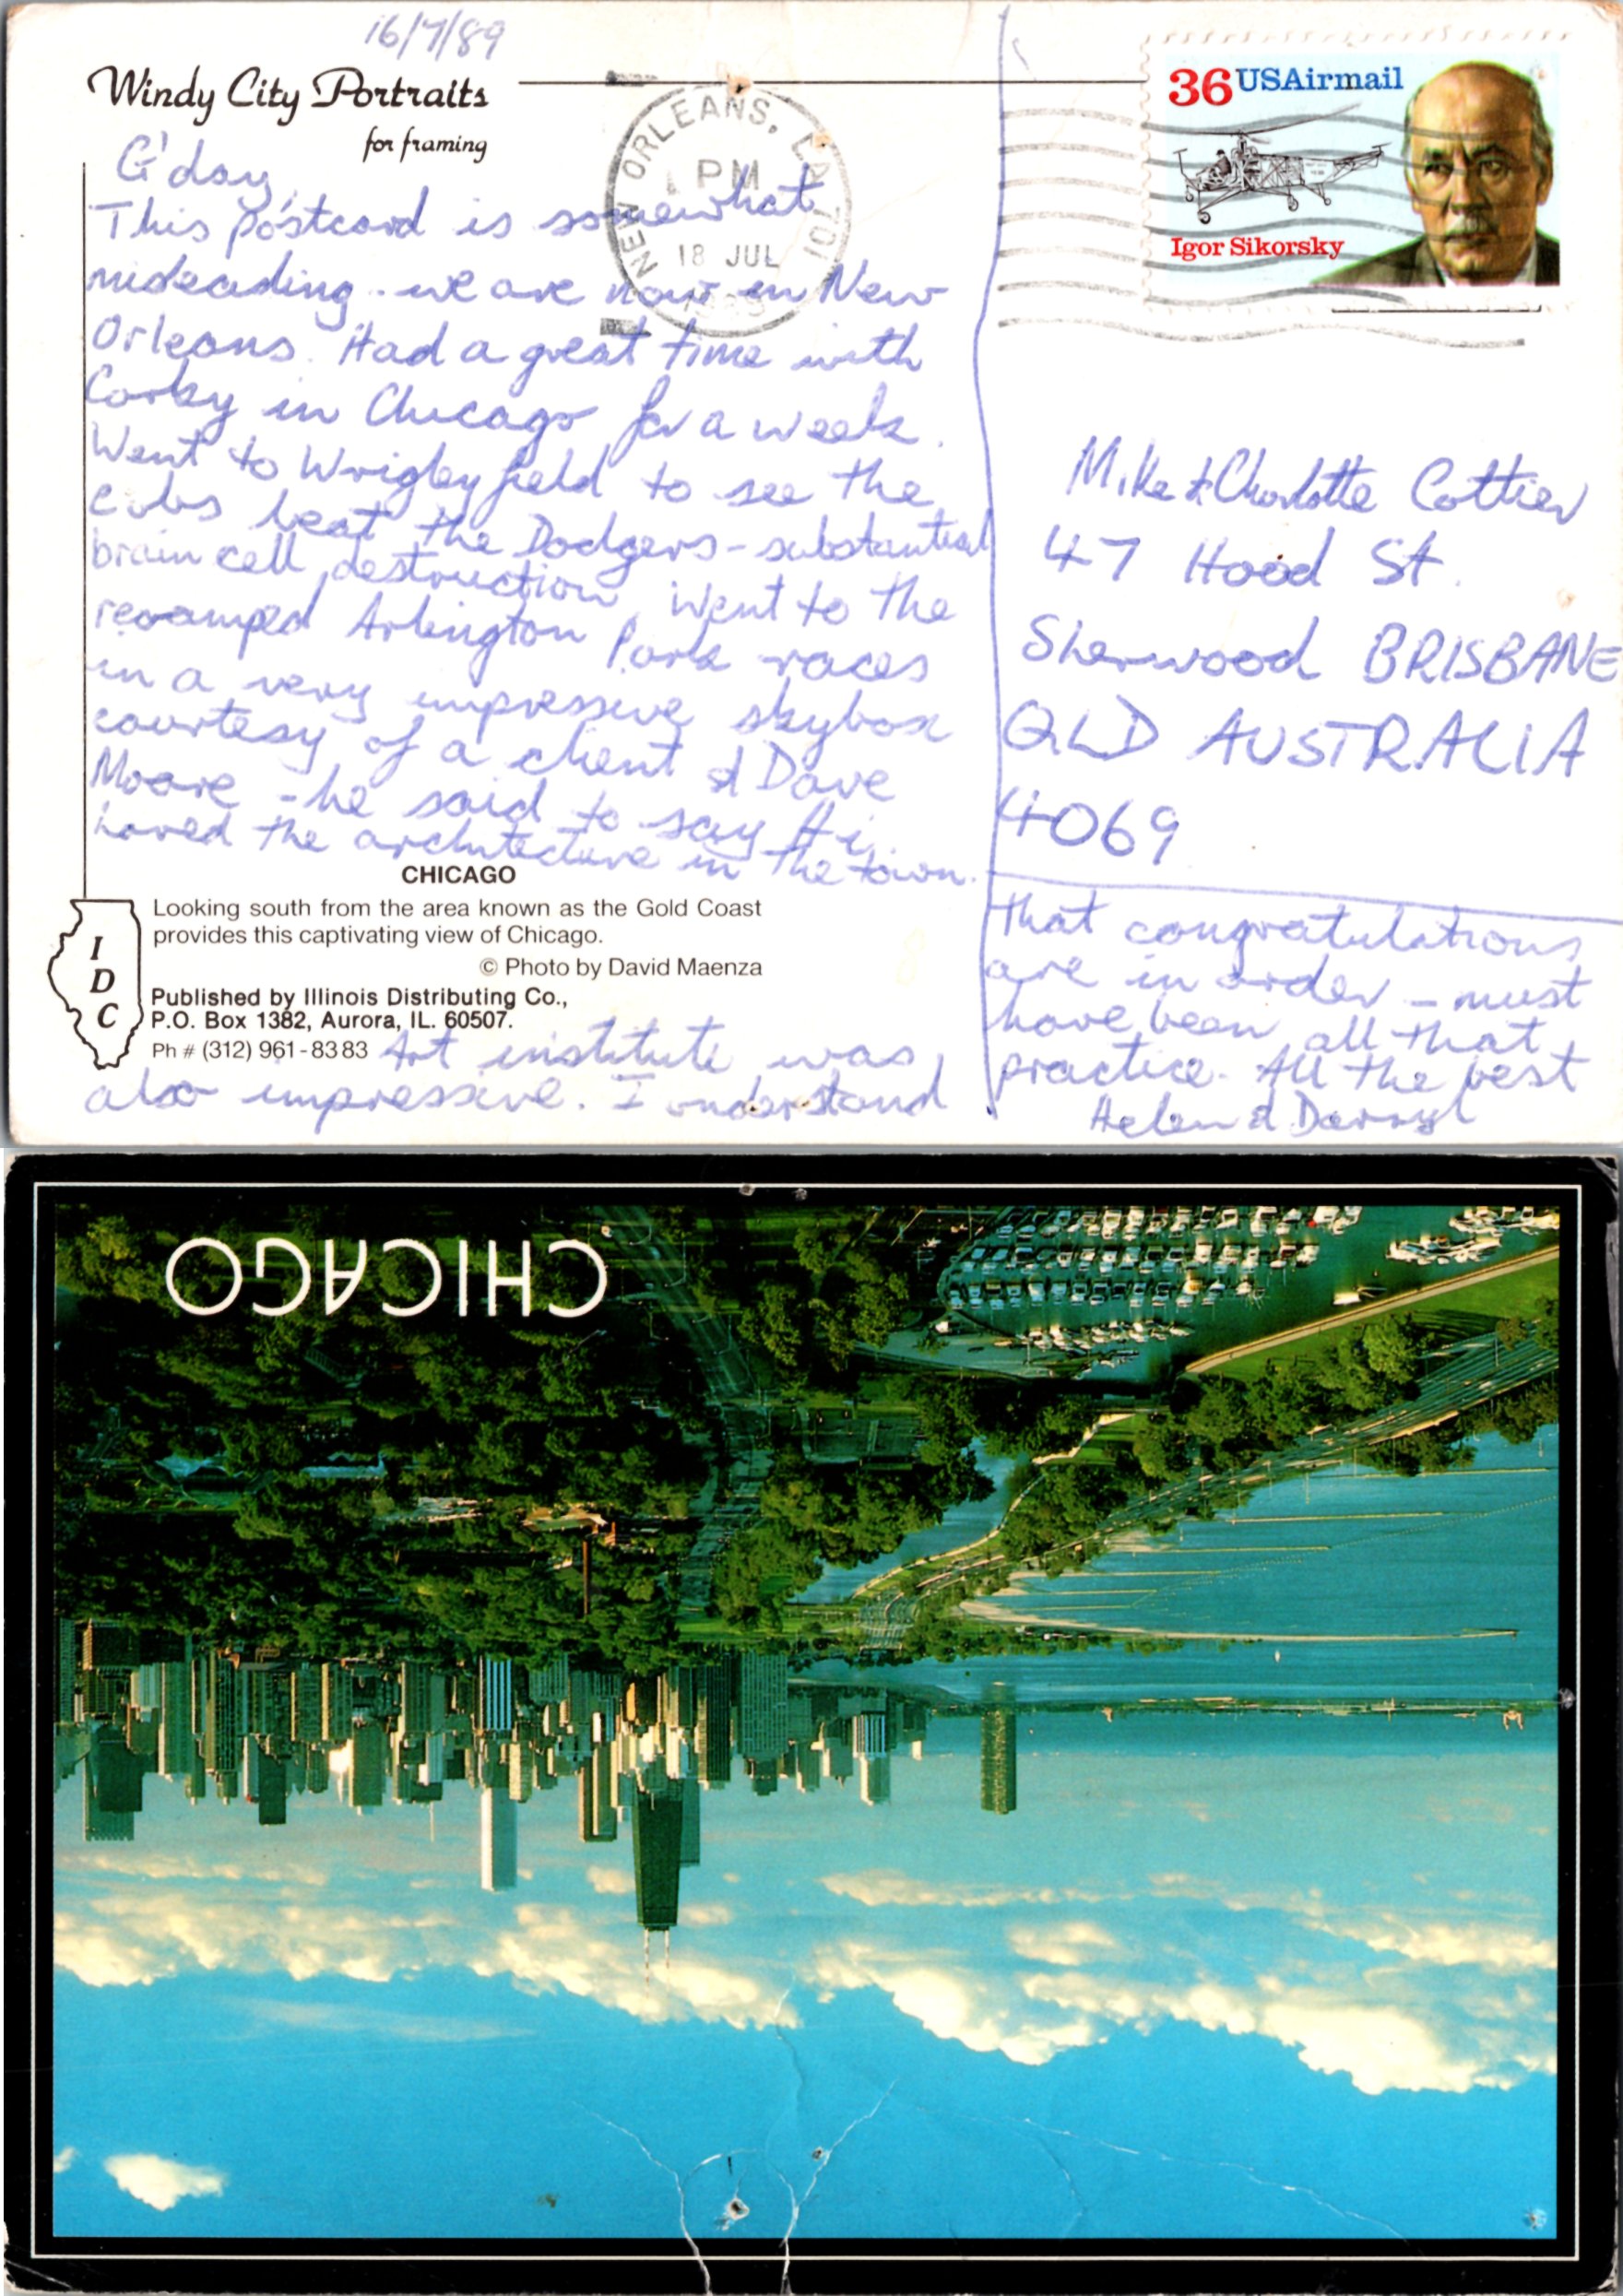 16/7/89
Windy City Portraits
for framing
G'day,
This postcard is somewhat
misleading - we are now in New
Orleans. Had a great time with
Corky in Chicago for a week.
Went to Wrigley field to see the
cubs beat the Dodgers - substantial
brain cell destruction. Went to the
revamped Arlington Park races
in a very impressive skybox
courtesy of a client of Dave
Moore - he said to say Hi.
Loved the architecture in the town.
CHICAGO
Looking south from the area known as the Gold Coast
provides this captivating view of Chicago.
© Photo by David Maenza
I
D
C
Published by Illinois Distributing Co.,
P.O. Box 1382, Aurora, IL. 60507.
Ph # (312) 961-8383
Art institute was
also impressive. I understand
NEW ORLEANS, LA 701
PM
18 JUL
1989
36 USAirmail
Igor Sikorsky
Mike & Charlotte Cottier
47 Hood St.
Sherwood BRISBANE
QLD AUSTRALIA
4069
that congratulations
are in order - must
have been all that
practice. All the best
Helen & Darryl
CHICAGO